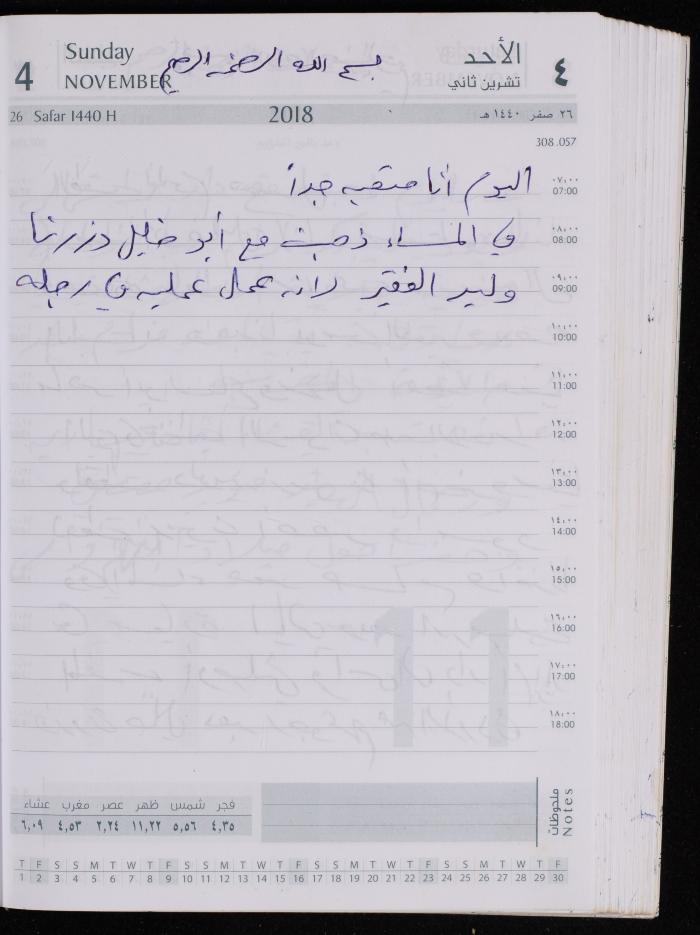 4 Sunday NOVEMBER
بسم الله الرحمن الرحيم
الأحد ٤
تشرين ثاني
26 Safar 1440 H 2018 ٢٦ صفر ١٤٤٠ هـ
308.057
اليوم أنا متعبه جداً
٠٧,٠٠ 07:00
في المساء ذهبت مع أبو خليل وزرنا
٠٨,٠٠ 08:00
وليد الفقير لانه عمل عمليه في رجله
٠٩,٠٠ 09:00
١٠,٠٠ 10:00
١١,٠٠ 11:00
١٢,٠٠ 12:00
١٣,٠٠ 13:00
١٤,٠٠ 14:00
١٥,٠٠ 15:00
١٦,٠٠ 16:00
١٧,٠٠ 17:00
١٨,٠٠ 18:00
11
ملحوظات Notes
فجر شمس ظهر عصر مغرب عشاء
٤,٣٥ ٥,٥٦ ١١,٢٢ ٢,٢٤ ٤,٥٣ ٦,٠٩
T F S S M T W T F S S M T W T F S S M T W T F S S M T W T F
1 2 3 4 5 6 7 8 9 10 11 12 13 14 15 16 17 18 19 20 21 22 23 24 25 26 27 28 29 30